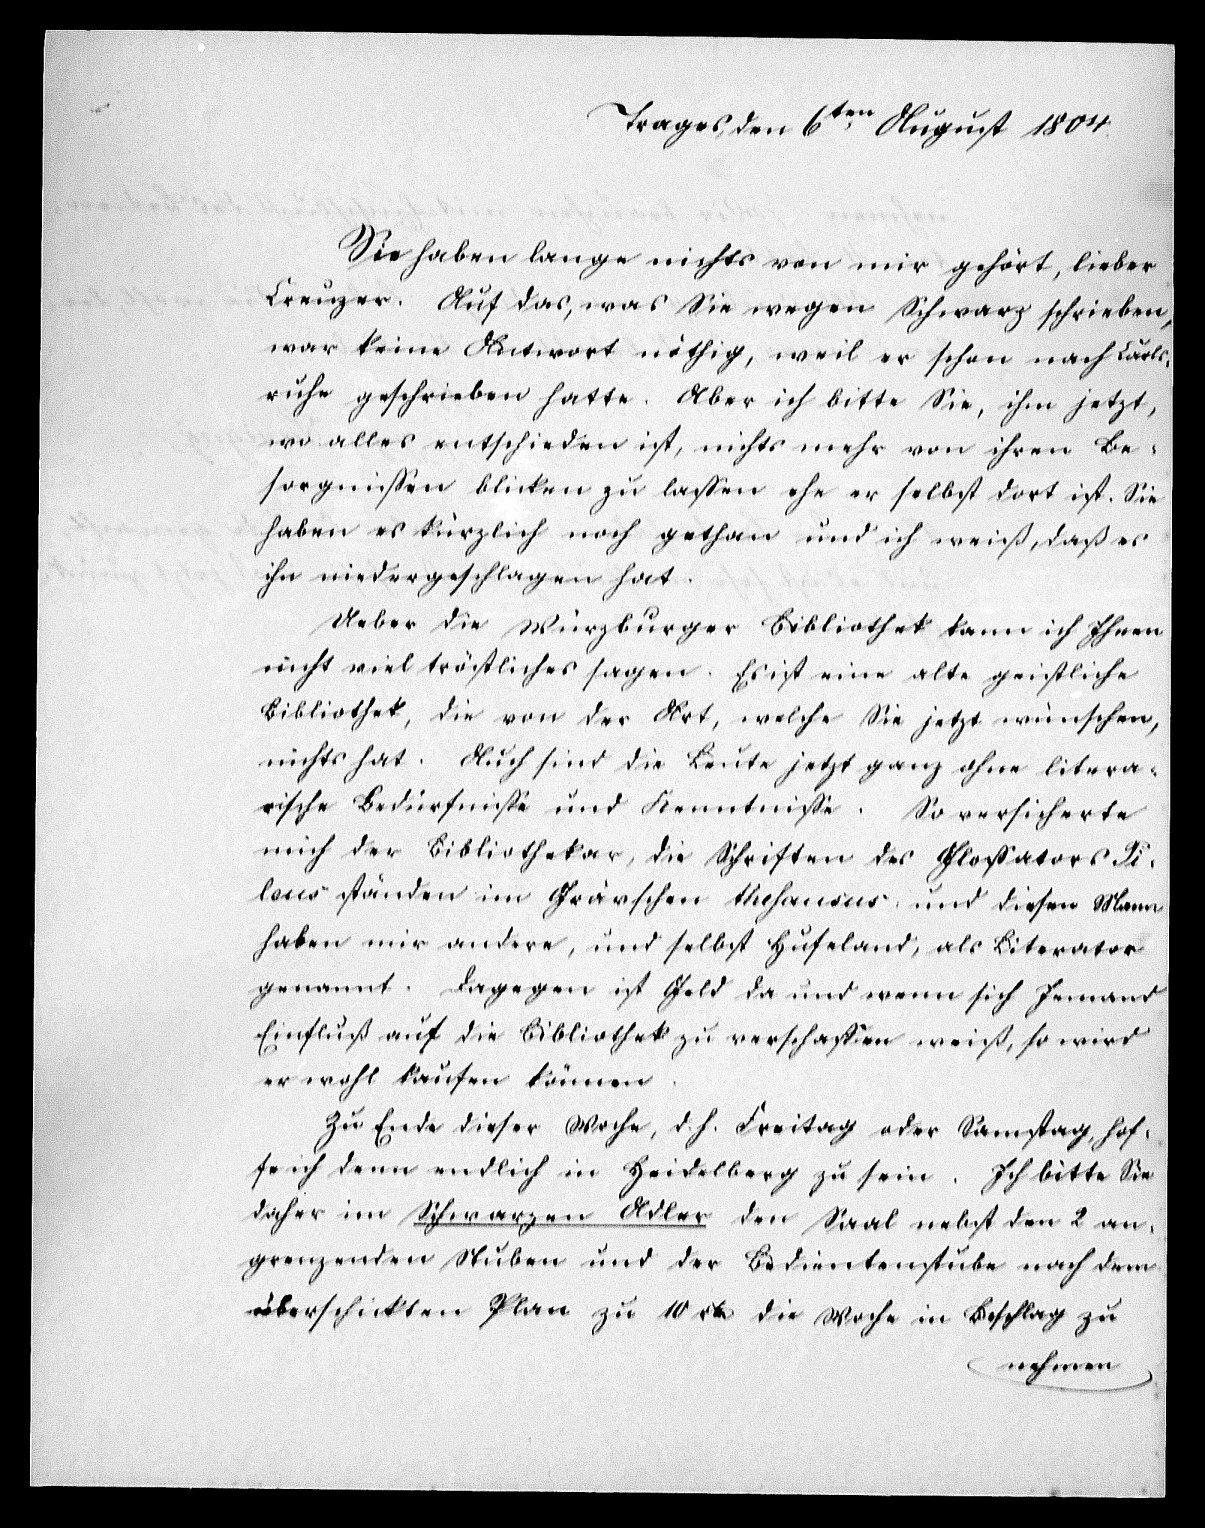 Trages, den 6ten August 1804.
Sie haben lange nichts von mir gehört, lieber
Creuzer. Auf das, was Sie wegen Schwarz schrieben,
war keine Antwort nöthig, weil er schon nach Carls-
ruhe geschrieben hatte. Aber ich bitte Sie, ihm jetzt,
wo alles entschieden ist, nichts mehr von ihren Be-
sorgnissen blicken zu lassen ehe er selbst dort ist. Sie
haben es kürzlich noch gethan und ich weiß, daß es
ihn niedergeschlagen hat.
Ueber die Würzburger Bibliothek kann ich Ihnen
nicht viel tröstliches sagen. Es ist eine alte geistliche
Bibliothek, die von der Art, welche Sie jetzt wünschen,
nichts hat. Auch sind die Leute jetzt ganz ohne litera-
rische Bedürfnisse und Kenntnisse. So versicherte
mich der Bibliothekar, die Schriften des Glossators Pi-
leus ständen im Grävschen thesaurus, und diesen Mann
haben mir andere, und selbst Hufeland, als Literator
genannt. Dagegen ist Geld da und wenn sich Jemand
Einfluß auf die Bibliothek zu verschaffen weiß, so wird
er wohl kaufen können.
Zu Ende dieser Woche, d.h. Freitag oder Samstag, hof-
fe ich denn endlich in Heidelberg zu sein. Ich bitte Sie
daher im Schwarzen Adler den Saal nebst den 2 an-
grenzenden Stuben und der Bedientenstube nach dem
überschickten Plan zu 10 rh die Woche in Beschlag zu
nehmen